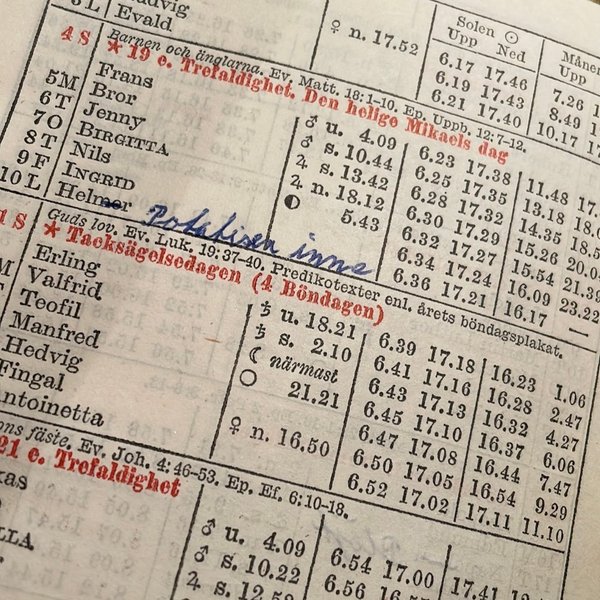 3 L Hedvig
Evald
♀ n. 17.52
Solen ☉
Upp Ned
Månen
Upp
6.17 17.46 7.26
6.19 17.43 8.49
6.21 17.40 10.17
Barnen och änglarna. Ev. Matt. 18:1-10. Ep. Uppb. 12:7-12.
4 S ★ 19 e. Trefaldighet. Den helige Mikaels dag
5 M Frans ♂ u. 4.09 6.23 17.38 11.48
6 T Bror ♂ s. 10.44 6.25 17.35 13.18
7 O Jenny ♃ s. 13.42 6.28 17.32 14.35
8 T BIRGITTA ♃ n. 18.12 6.30 17.29 15.26 20.04
9 F Nils ◐ 5.43 6.32 17.27 15.54 21.39
10 L INGRID 6.34 17.24 16.09 23.22
Helmer Potatisen inne 6.36 17.21 16.17 —
Guds lov. Ev. Luk. 19:37-40. Predikotexter enl. årets böndagsplakat.
S ★ Tacksägelsedagen (4 Böndagen)
Erling ♄ u. 18.21 6.39 17.18 16.23 1.06
Valfrid ♄ s. 2.10 6.41 17.16 16.28 2.47
Teofil ☾ närmast 6.43 17.13 16.32 4.27
Manfred ○ 21.21 6.45 17.10 16.37 6.06
Hedvig 6.47 17.08 16.44 7.47
Fingal ♀ n. 16.50 6.50 17.05 16.54 9.29
Antoinetta 6.52 17.02 17.11 11.10
fäste. Ev. Joh. 4:46-53. Ep. Ef. 6:10-18.
21 e. Trefaldighet
♂ u. 4.09 6.54 17.00 17.41
♂ s. 10.22 6.56
♃ s. 12.58